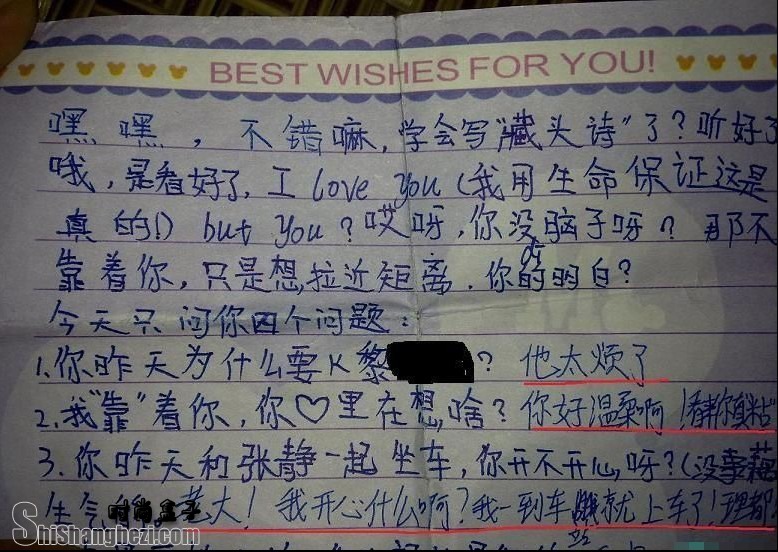 BEST WISHES FOR YOU!
嘿嘿，不错嘛，学会写"藏头诗"了？听好了
哦，是看好了，I love you（我用生命保证这是
真的!）but you？哎呀，你没脑子呀？那不
靠着你，只是想拉近距离，你的明白？
今天只问你四个问题：
1.你昨天为什么要K黎？他太烦了
2.我"靠"着你，你♡里在想啥？你好温柔啊！
3.你昨天和张静一起坐车，你开不开心呀？(没
生气 大！我开心什么啊？我一到车站就上车了！理都
时尚盒子
ShiShanghezi.com